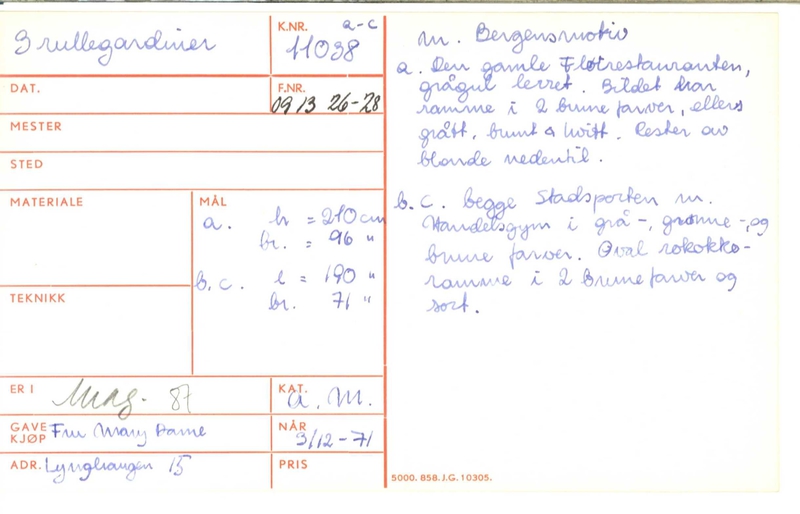 3 rullegardiner
K.NR. a-c
11038
DAT.
F.NR.
0913 26-28
MESTER
STED
MATERIALE
MÅL
a. h = 210 cm
br. = 96 "
b.c. l = 190 "
br. 71 "
TEKNIKK
ER I Mag. 87
KAT.
a.m.
GAVE
KJØP Fru Mary
NÅR
3/12-71
ADR. Lynghaugen 15
PRIS
m. Bergensmotiv
a. Den gamle Fløirestauranten,
grågul lerret. Bildet har
ramme i 2 brune farver, ellers
grått, brunt & hvitt. Rester av
blonde nedentil.
b.c. begge Stadsporten m.
Handelsgym i grå-, grønne-, og
brune farver. Oval rokokko-
ramme i 2 brune farver og
sort.
5000. 858. J.G. 10305.